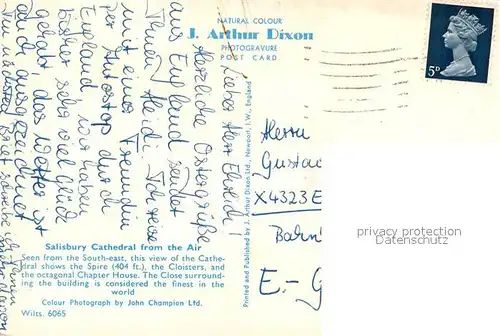 NATURAL COLOUR
J. Arthur Dixon
PHOTOGRAVURE
POST CARD
5D
Lieber Herr Ehreidl!
Herzliche Ostergrüße
aus England sendet
Ihnen Heidi. Ich reise
mit einer Freundin
per Autostop durch
England. Wir haben
bisher sehr viel Glück
gehabt, das Wetter ist
auch ausgezeichnet.
Im nächsten Brief schreibe ich Ihnen
Printed and Published by J. Arthur Dixon Ltd., Newport, I.W., England
Herrn
Gustav
X4323 E
Bahn
E.- G
privacy protection
datenschutz
Salisbury Cathedral from the Air
Seen from the South-east, this view of the Cathe-
dral shows the Spire (404 ft.), the Cloisters, and
the octagonal Chapter House. The Close surround-
ing the building is considered the finest in the
world
Colour Photograph by John Champion Ltd.
Wilts. 6065